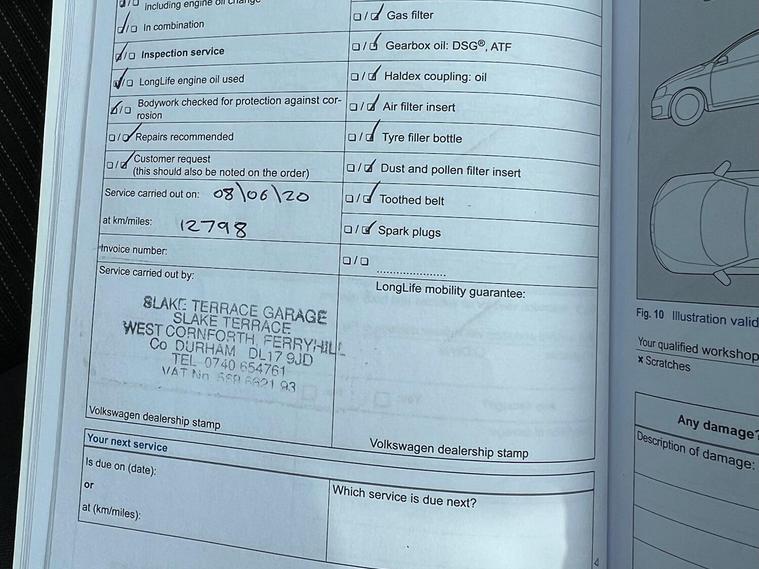 including engine oil change
In combination
Inspection service
LongLife engine oil used
Bodywork checked for protection against cor-
rosion
Repairs recommended
Customer request
(this should also be noted on the order)
Service carried out on: 08\06\20
at km/miles: 12798
Invoice number:
Service carried out by:
SLAKE TERRACE GARAGE
SLAKE TERRACE
WEST CORNFORTH, FERRYHILL
Co DURHAM DL17 9JD
TEL 0740 654761
VAT No
Volkswagen dealership stamp
Gas filter
Gearbox oil: DSG®, ATF
Haldex coupling: oil
Air filter insert
Tyre filler bottle
Dust and pollen filter insert
Toothed belt
Spark plugs
LongLife mobility guarantee:
Volkswagen dealership stamp
Your next service
Is due on (date):
or
at (km/miles):
Which service is due next?
4
Fig. 10 Illustration valid
Your qualified workshop
x Scratches
Any damage?
Description of damage: